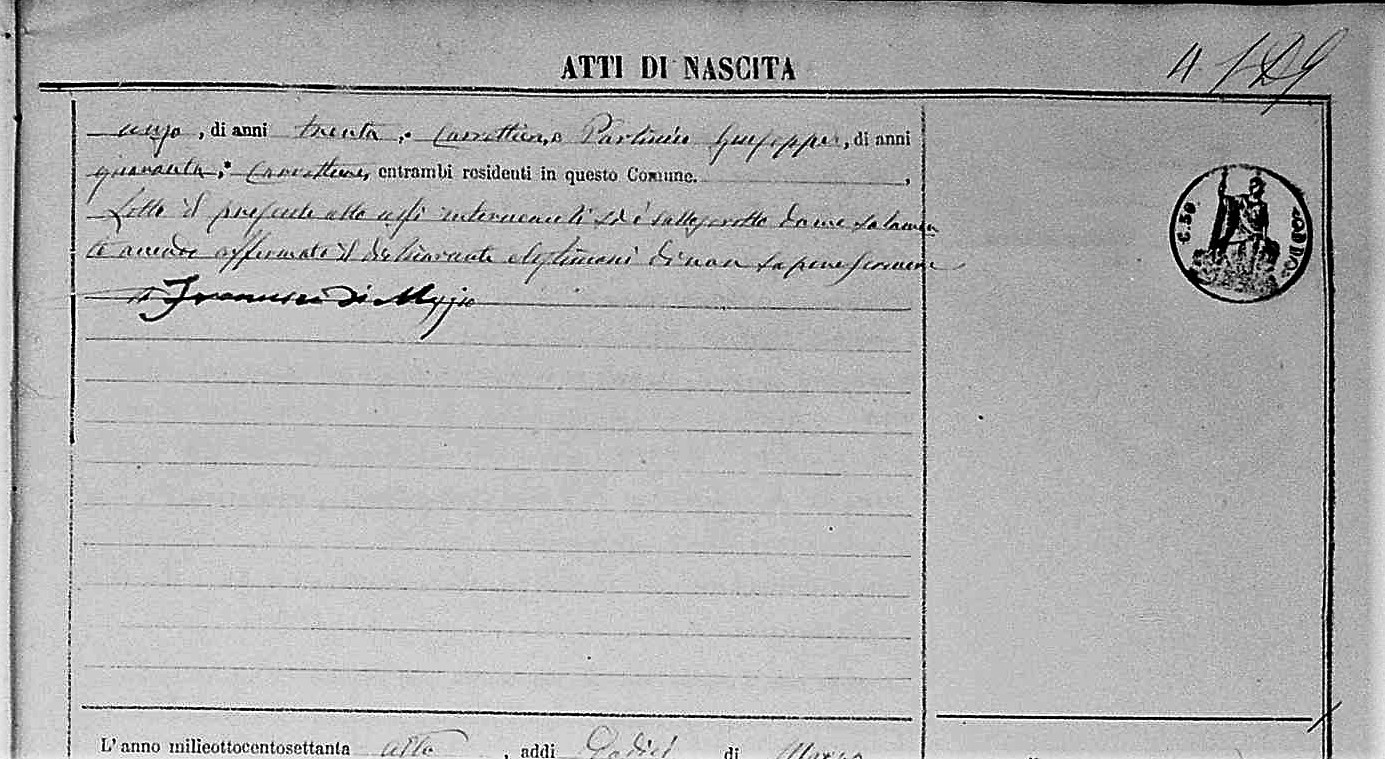 ATTI DI NASCITA
4. 129
, di anni trenta, Carrettiere, e Partinico Giuseppe, di anni
quaranta, Carrettiere, entrambi residenti in questo Comune.
Letto il presente atto agli intervenuti si è sottoscritto da me solamen
te avendo affermato il dichiarante e testimoni di non sapere scrivere
Francesco Di Maggio
C. 50
L'anno milleottocentosettanta otto, addì Dodici di Marzo